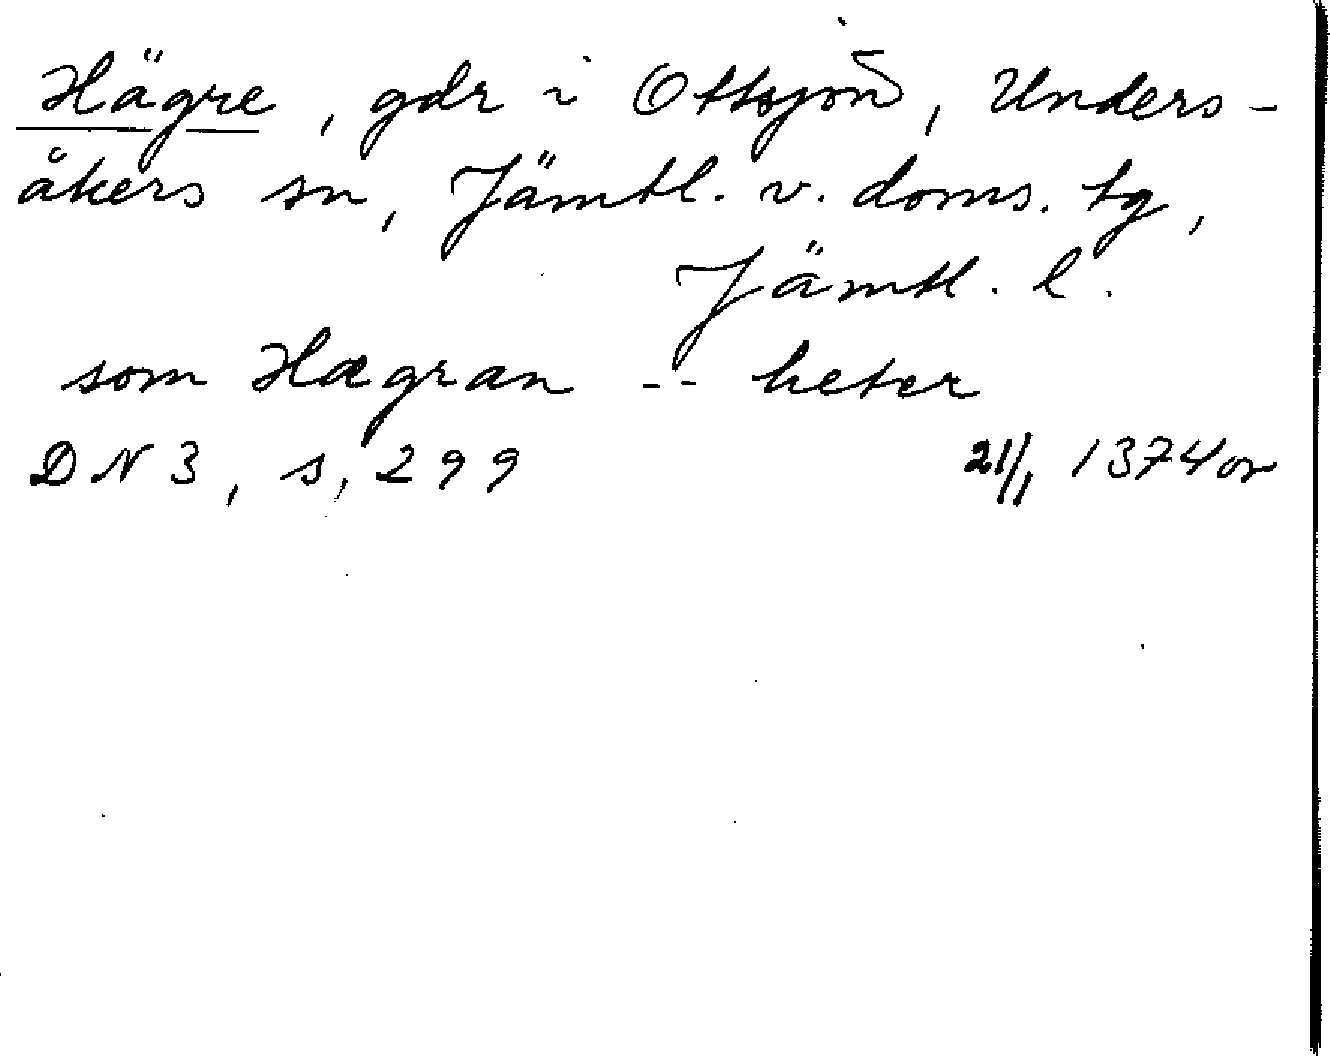 Hägre, gdr i Ottsjön, Unders-
åkers sn, Jämtl. v. doms. tg,
Jämtl. l.
som Hægran -- heter
DN 3, s, 299 21/1 1374 or